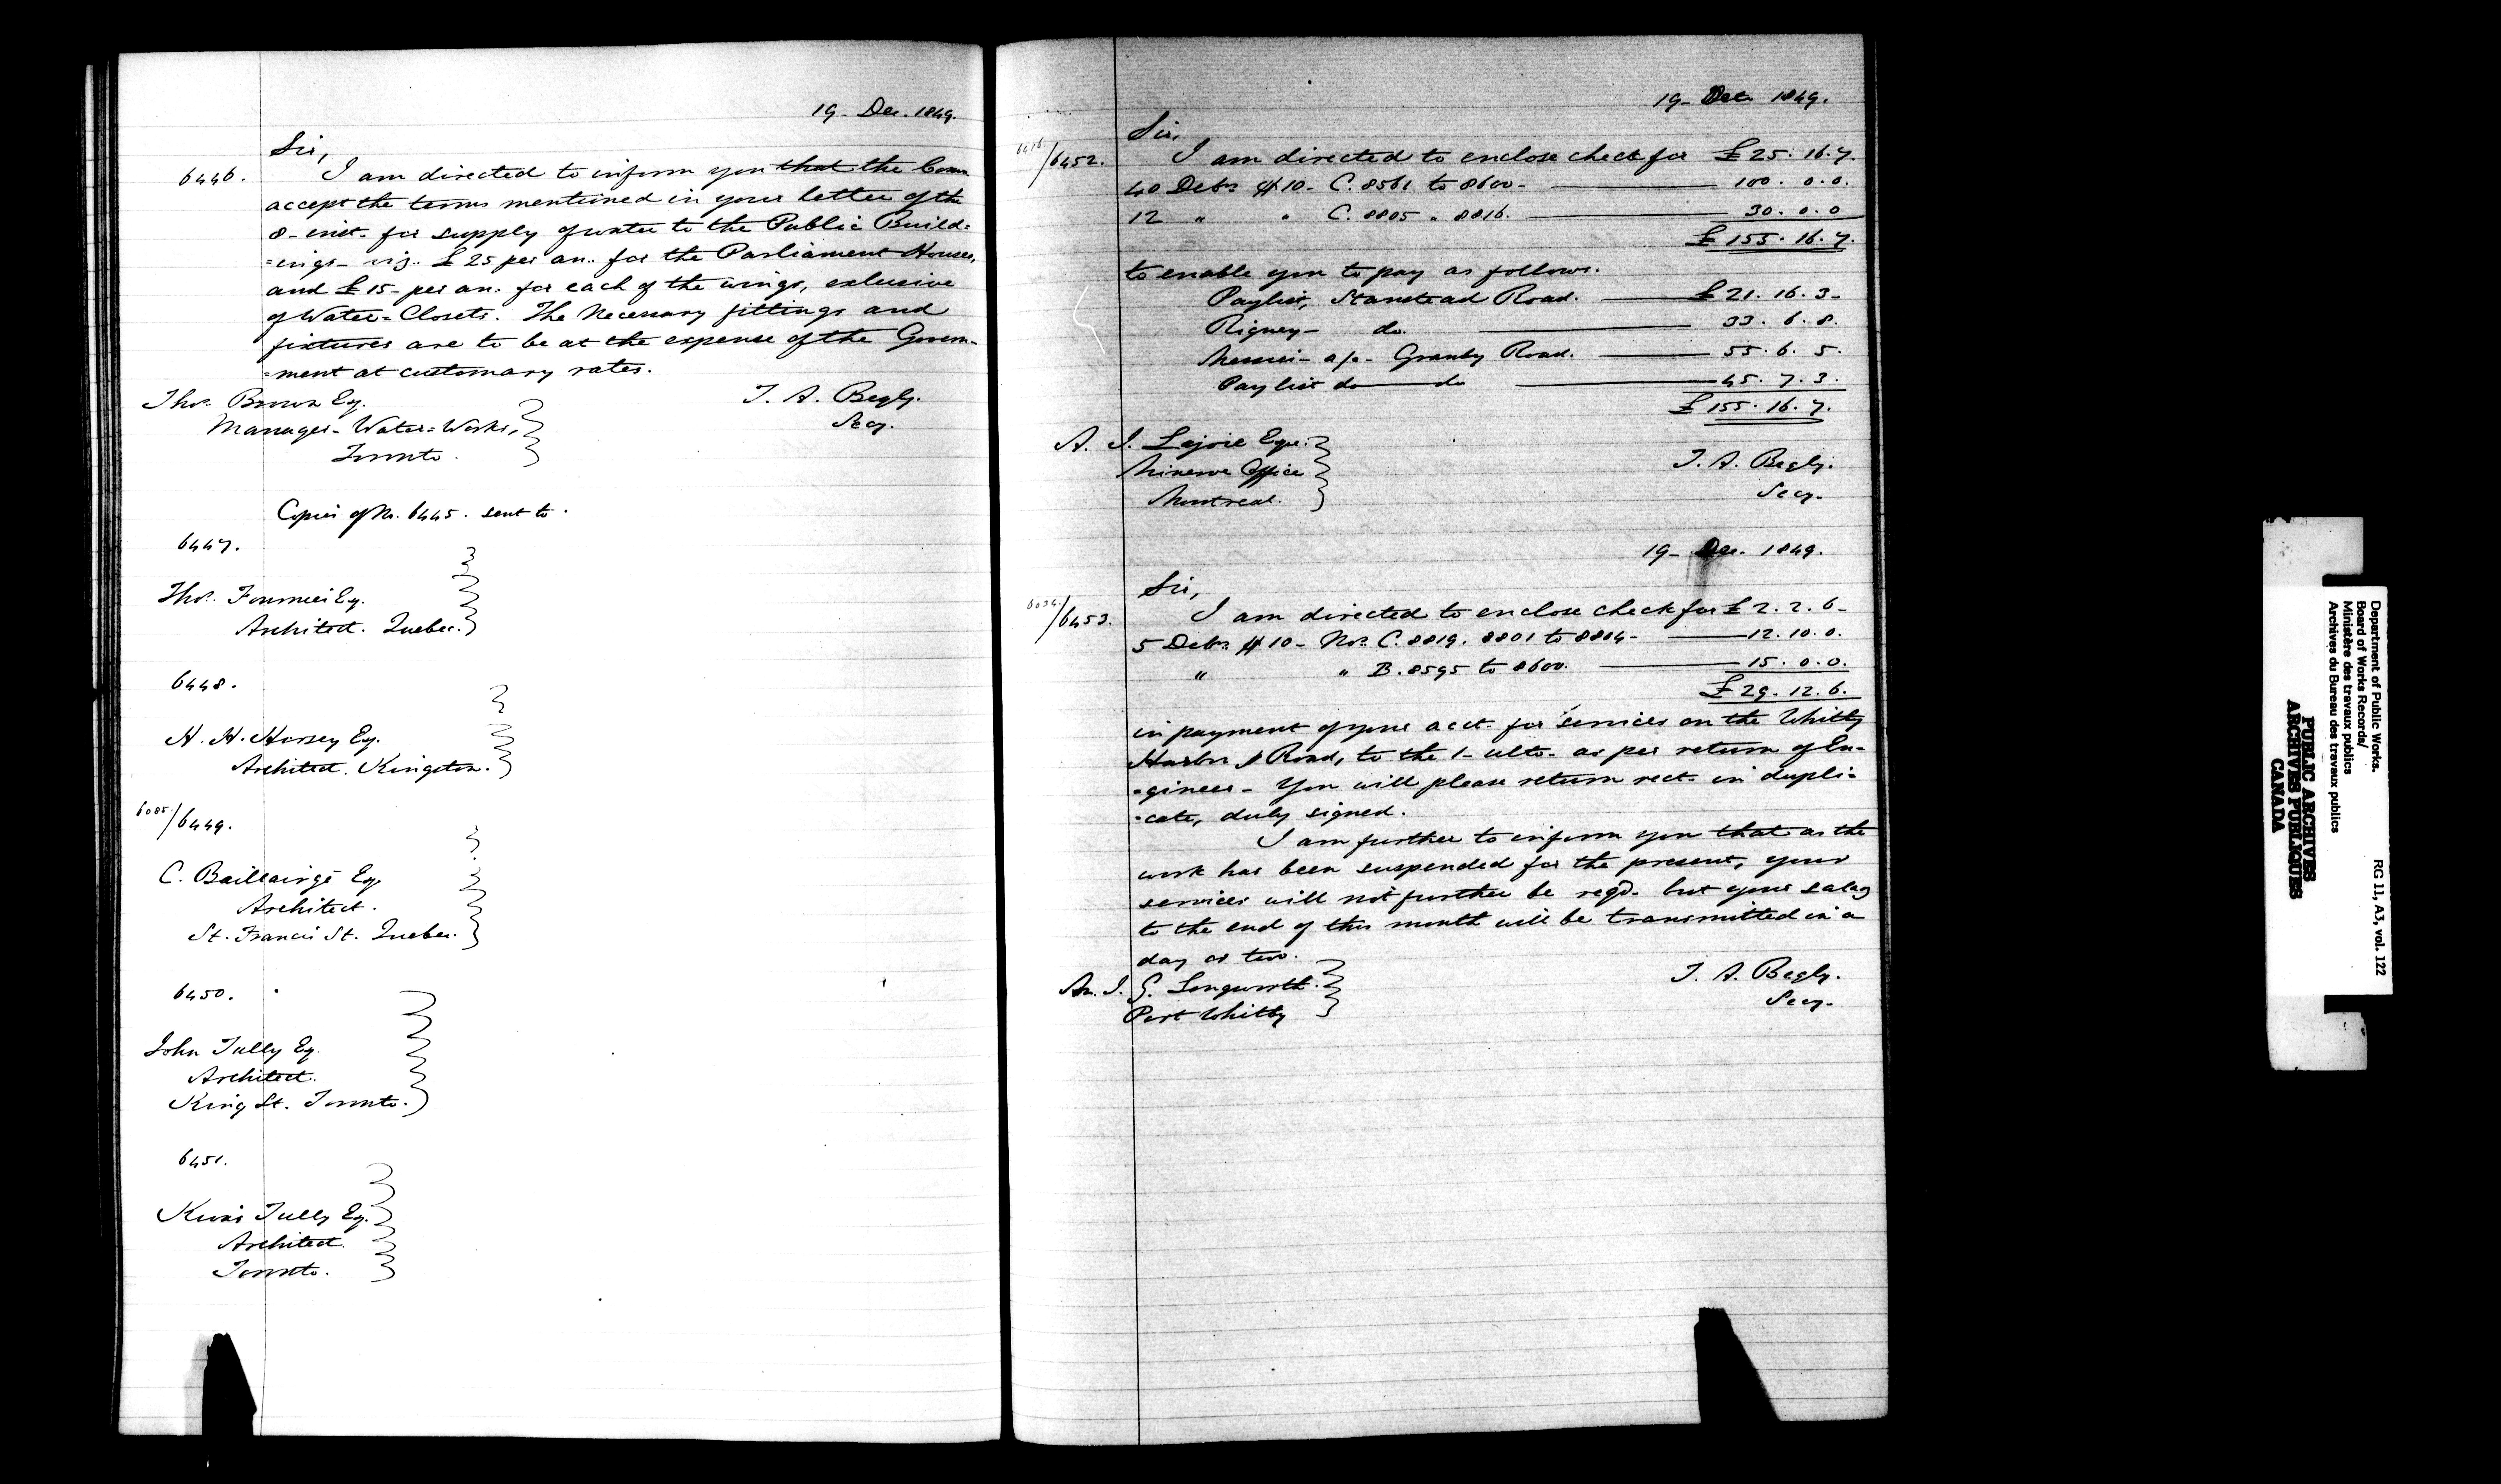 19 - Dec. 1849.
Sir,
6446. I am directed to inform you that the Comrs
accept the terms mentioned in your letter of the
8 - inst. for supply of water to the Public Build=
=ings - viz. £25 per an. for the Parliament Houses,
and £15 - per an. for each of the wings, exlusive
of Water=Closets. The Necessary fittings and
fixtures are to be at the expense of the Govern=
=ment at customary rates.
Thos. Brown Esq. T. A. Begly.
Manager - Water=Works, Secy.
Toronto.
Copies of No. 6445. sent to.
6447.
Thos. Fournier Esq.
Architect. Quebec.
6448.
H. H. Horsey Esq.
Architect. Kingston.
6085/6449.
C. Baillairgé Esq.
Architect.
St. Francis St. Quebec.
6450.
John Tully Esq.
Architect.
King St. Toronto.
6451.
Kivas Tully Esq.
Architect.
Toronto.
19 - Dec 1849.
Sir,
/6452. I am directed to enclose check for £25. 16. 7.
40 Debs $10 - C. 8561 to 8600 - 100. 0. 0.
12 " " C. 8805 " 8816. 30. 0. 0
£155. 16. 7.
to enable you to pay as follows.
Paylist, Stanstead Road. £21. 16. 3 -
Rigney - do. 33. 6. 8.
a/c - Granby Road. 55. 6. 5.
Paylist do do 45. 7. 3.
£155. 16. 7.
A. J. Lajoie Esqre.
Minerve Office T. A. Begly.
Montreal. Secy -
19 - Dec. 1849.
Sir,
6034./6453. I am directed to enclose check for £2. 2. 6 -
5 Debs $10 - Nos. C. 8819. 8801 to 8804 - 12. 10. 0.
" " B. 8595 to 8600. 15. 0. 0.
£29. 12. 6.
in payment of your acct. for services on the Whitby
Harbr & Road, to the 1 - ulto. as per return of En=
=gineer - You will please return rect. in dupli=
=cate, duly signed.
I am further to inform you that as the
work has been suspended for the present, your
services will not further be reqd. but your salary
to the end of this month will be transmitted in a
day or two.
Mr. J. G. Longworth. T. A. Begly.
Port Whitby Secy -
Department of Public Works.
Board of Works Records/
Ministère des travaux publics
Archives du Bureau des travaux publics
RG 11, A3, vol. 122
PUBLIC ARCHIVES
ARCHIVES PUBLIQUES
CANADA